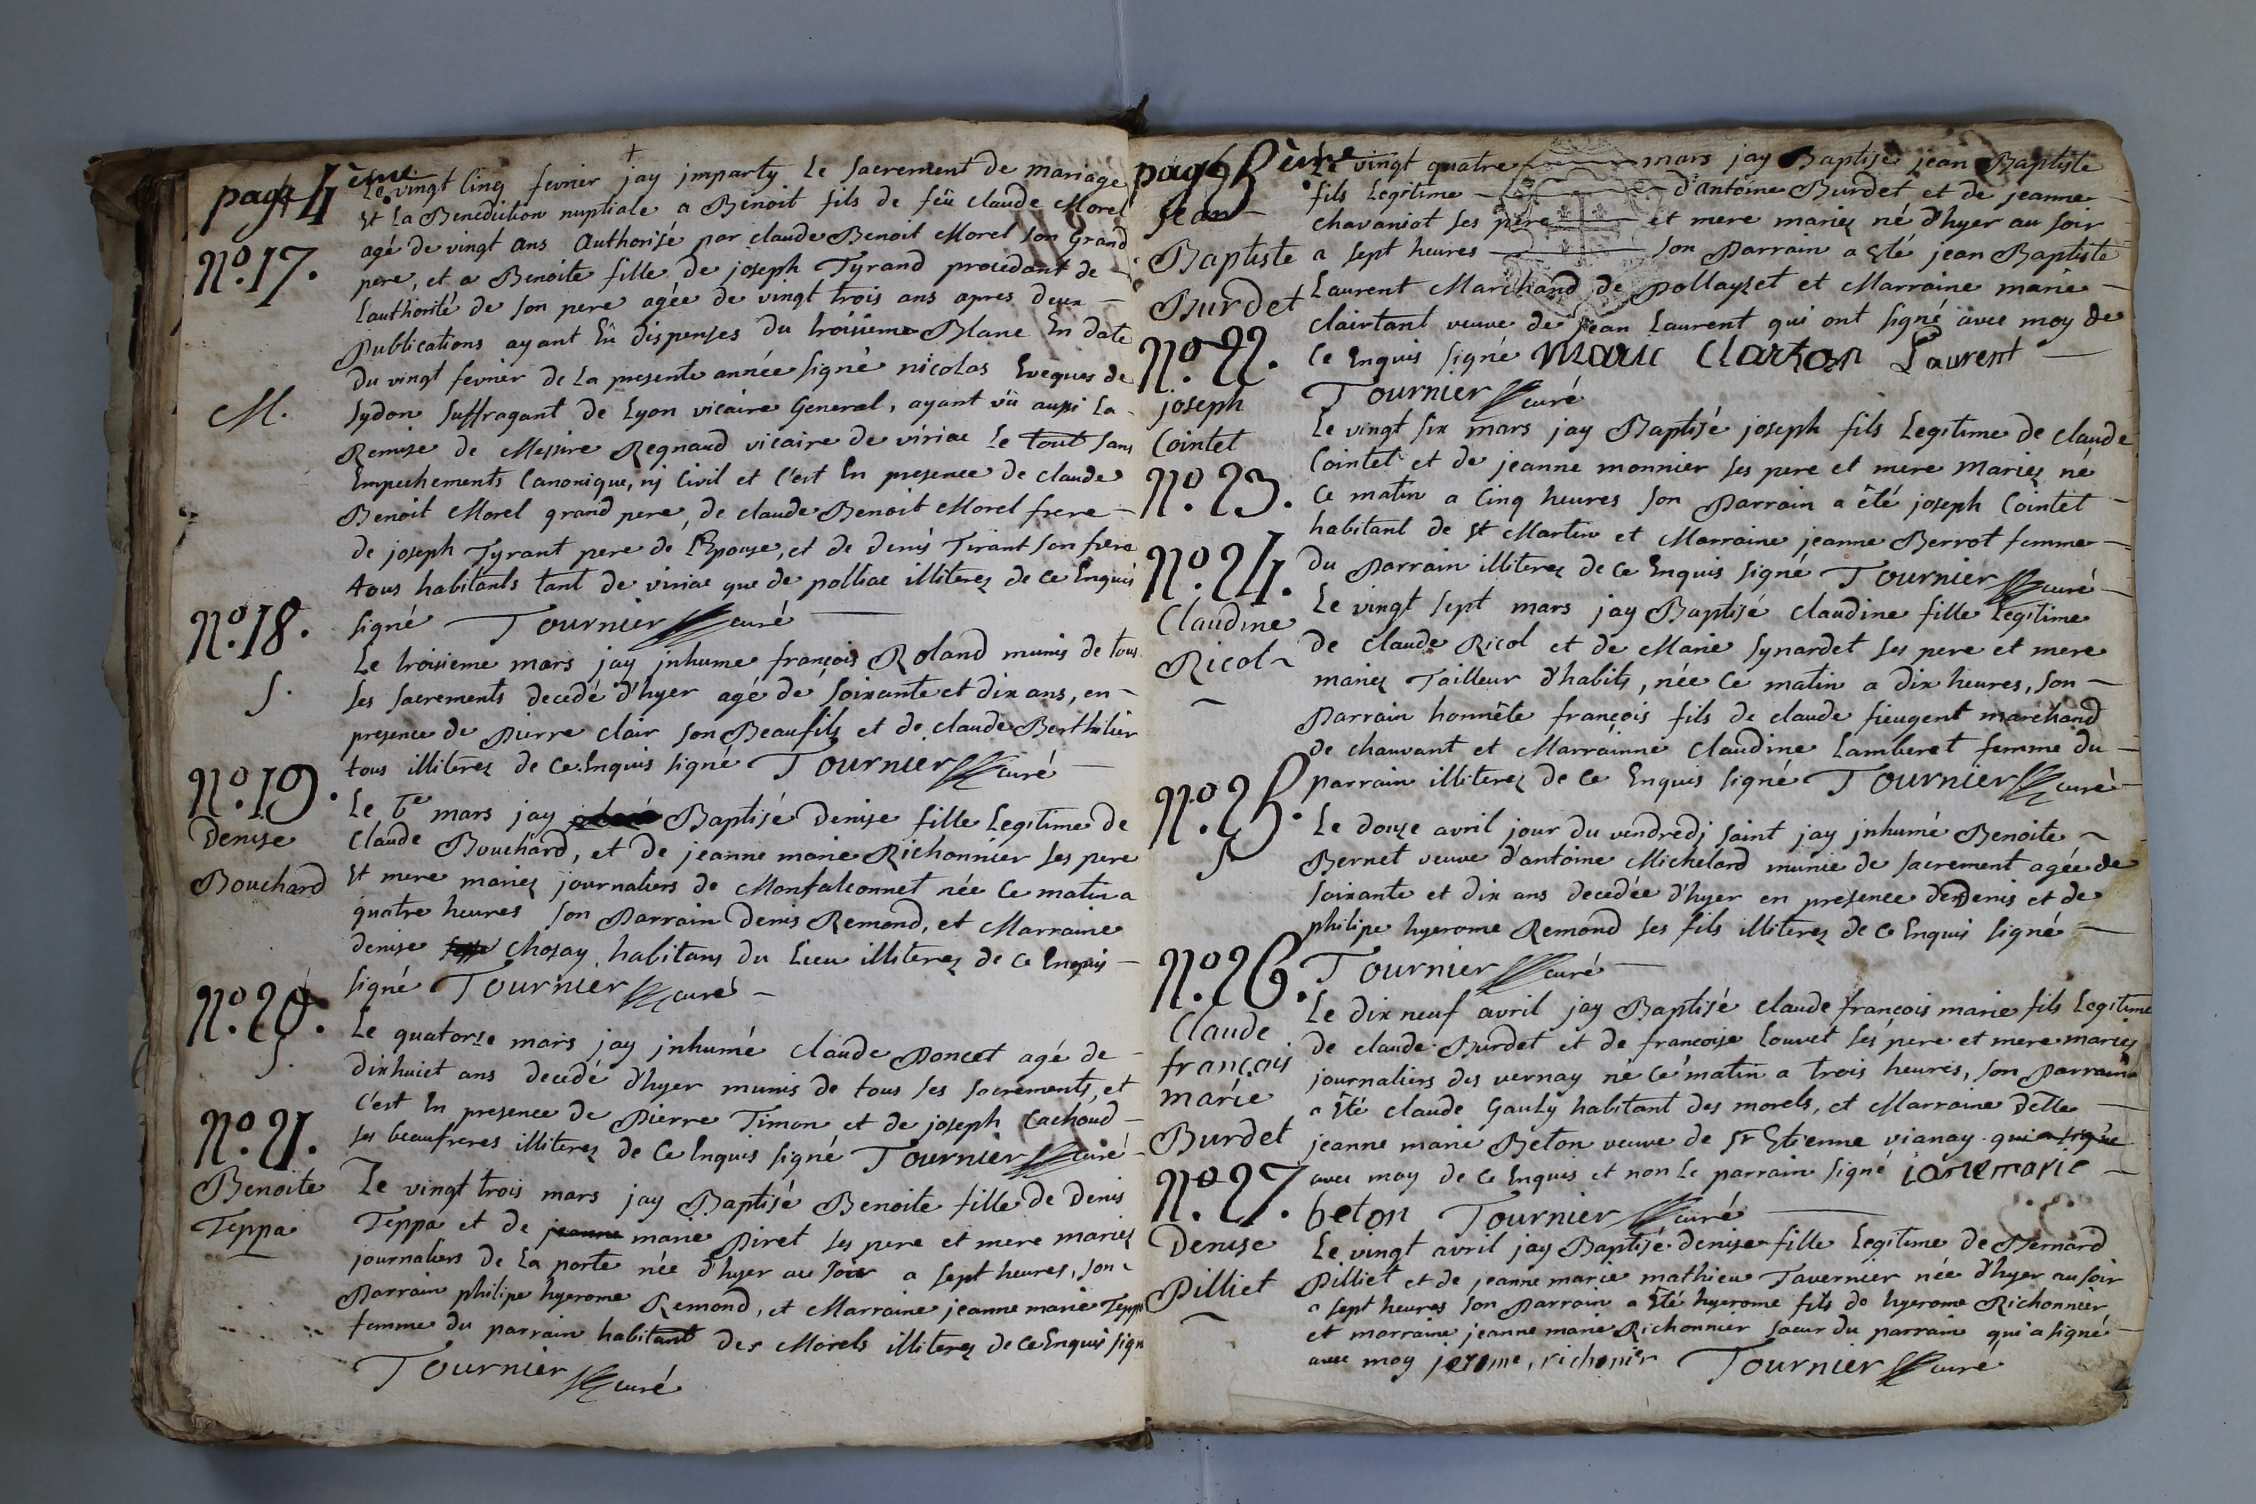 page 4ème
Le vingt cinq fevrier jay imparty le sacrement de mariage
et la Benediction nuptiale a Benoit fils de feü claude Morel
N.º 17.
agé de vingt ans authorisé par claude Benoit Morel son Grand
pere, et a Benoite fille de joseph Tyrand procedant de
l'authorité de son pere agée de vingt trois ans apres deux
Publications ayant Eü dispenses du troisieme Blanc En date
du vingt fevrier de la presente année signé nicolas Eveques de
M.
sydon suffragant de Lyon vicaire General, ayant vü aussi la
Remise de Messire Regnaud vicaire de viriac le tout sans
Empechements Canonique, nj Civil et c'est En presence de claude
Benoit Morel grand pere, de claude Benoit Morel frere
de joseph Tyrant pere de l'Epouse, et de denis Tirant son frere
tous habitants tant de viriac que de polliac illiterez de ce Enquis
signé Tournier curé
N.º 18.
S.
Le troisieme mars jay jnhume françois Roland munis de tous
ses sacrements decedé d'hyer agé de soixante et dix ans, en
presence de Pierre clair son Beaufils et de claude Berthilier
tous illiterez de ce Enquis signé Tournier curé
N.º 19.
Denise
Bouchard
Le 6e mars jay Baptisé Denise fille Legitime de
Claude Bouchard, et de jeanne marie Richonnier ses pere
et mere mariez journaliers de Monfalconnet née ce matin a
quatre heures son Parrain Denis Remond, et Marraine
denise Chosay habitans du Lieu illiterez de ce Enquis
signé Tournier curé
N.º 20.
S.
Le quatorze mars jay jnhumé Claude Poncet agé de
dixhuict ans decedé d'hyer munis de tous ses sacrements, et
c'est En presence de Pierre Timon et de joseph Cachoud
ses beaufreres illiterez de ce Enquis signé Tournier curé
N.º 21.
Benoite
Teppa
Le vingt trois mars jay Baptisé Benoite fille de Denis
Teppa et de jeanne marie Piret ses pere et mere mariez
journaliers de la porte née d'hyer au soir a sept heures, son
Parrain philipe hyerome Remond, et Marraine jeanne marie Teppa
femme du parrain habitant des Morels illiterez de ce Enquis signé
Tournier curé
page 5ème
Jean
Baptiste
Burdet
N.º 22.
Le vingt quatre mars jay Baptisé jean Baptiste
fils Legitime d'antoine Burdet et de jeanne
chavaniot ses pere et mere mariez né d'hyer au soir
a sept heures son Parrain a Eté jean Baptiste
Laurent Marchand de pollayzet et Marraine marie
clairtant veuve de jean Laurent qui ont signé avec moy de
ce Enquis signé Marie Clarton Laurent
Tournier curé
joseph
Cointet
N.º 23.
Le vingt six mars jay Baptisé joseph fils Legitime de claude
Cointet et de jeanne monnier ses pere et mere mariez né
ce matin a cinq heures son Parrain a été joseph Cointet
habitant de St Martin et Marraine jeanne Berrot femme
du Parrain illiterez de ce Enquis signé Tournier curé
N.º 24.
Claudine
Ricol
Le vingt sept mars jay Baptisé claudine fille Legitime
de claude Ricol et de Marie synardet ses pere et mere
mariez Tailleur d'habits, née ce matin a dix heures, son
Parrain honnête françois fils de claude fieugent marchand
de chauvant et Marrainne claudine Lamberet femme du
parrain illiterez de ce Enquis signé Tournier curé
N.º 25.
S
Le douze avril jour du vendredj saint jay jnhumé Benoite
Bernet veuve d'antoine Michelard munie de sacrement agée de
soixante et dix ans decedée d'hyer en presence de Denis et de
philipe hyerome Remond ses fils illiterez de ce Enquis signé
Tournier curé
N.º 26.
Claude
françois
marie
Burdet
Le dix neuf avril jay Baptisé claude françois marie fils Legitime
de claude Burdet et de francoise Louvet ses pere et mere mariez
journaliers des vernay né ce matin a trois heures, son Parrain
a Eté claude Gauly habitant des morels, et Marraine Delle
jeanne marie Beton veuve de sr Etienne vianay qui a signé
avec moy de ce Enquis et non le parrain signé janemarie
beton Tournier curé
N.º 27.
Denise
Pilliet
Le vingt avril jay Baptisé denise fille Legitime de Bernard
Pilliet et de jeanne marie mathieu Tavernier née d'hyer au soir
a sept heures son Parrain a Eté hyerome fils de hyerome Richonnier
et marraine jeanne marie Richonnier soeur du parrain qui a signé
avec moy jerome, richonier Tournier curé